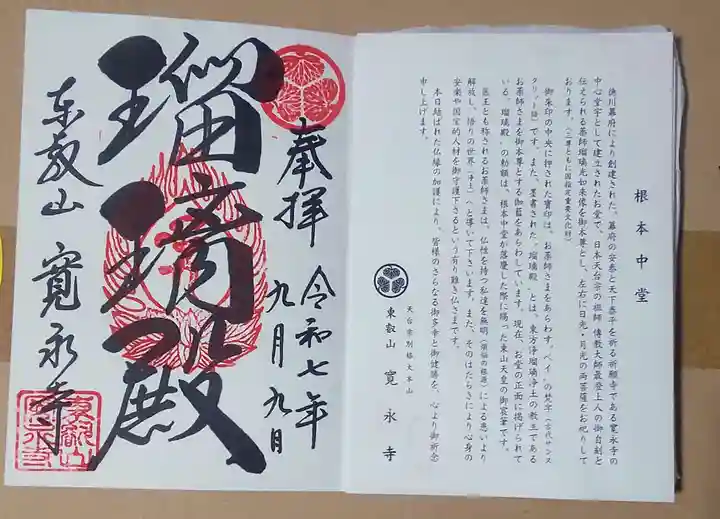 根本中堂
徳川幕府により創建された、幕府の安泰と天下泰平を祈る祈願寺である寛永寺の
中心堂宇として建立されたお堂で、日本天台宗の祖師 傳教大師最澄上人の御自刻と
伝えられる薬師瑠璃光如来像を御本尊とし、左右に日光・月光の両菩薩をお祀りして
おります。(三尊ともに国指定重要文化財)
御朱印の中央に押された寶印は、お薬師さまをあらわす。ベイ の梵字(古代サンス
クリット語)です。また、墨書された「瑠璃殿」とは、東方浄瑠璃浄土の教主である
お薬師さまを御本尊とする伽藍をあらわしています。現在、お堂の正面に掲げられて
いる「瑠璃殿」の勅額は、根本中堂が落慶した際に賜った東山天皇の御宸筆です。
医王とも称されるお薬師さまは、仏性を持つ私達を無明(煩悩の根源)による惑いより
解放し、悟りの世界(浄土)へと導いて下さいます。また、そのはたらきにより心身の
安楽や国宝的人材を御守護下さるという有り難き仏さまです。
本日結ばれた仏縁の加護により、皆様のさらなる御多幸と御健勝を、心より御祈念
申し上げます。
天台宗別格大本山
東叡山 寛永寺
奉拝 令和七年
九月九日
瑠璃殿
東叡山 寛永寺
東叡山
寛永寺